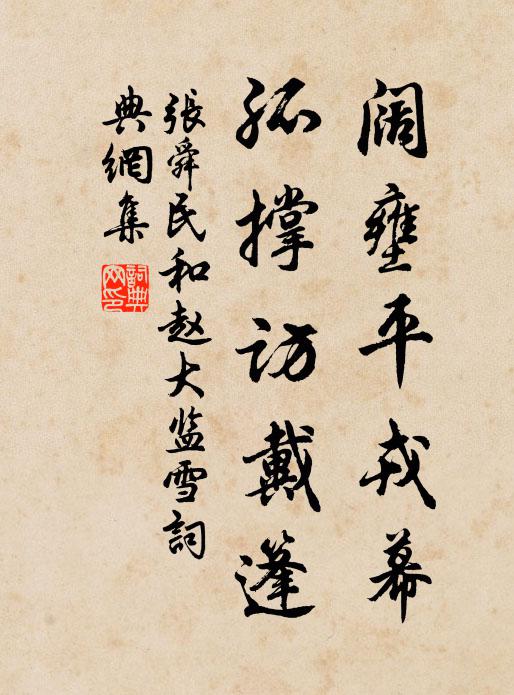 阔壅平戎幕
孤撑访戴篷
張舜民和赵大监雪詞
典網集
詞典网印